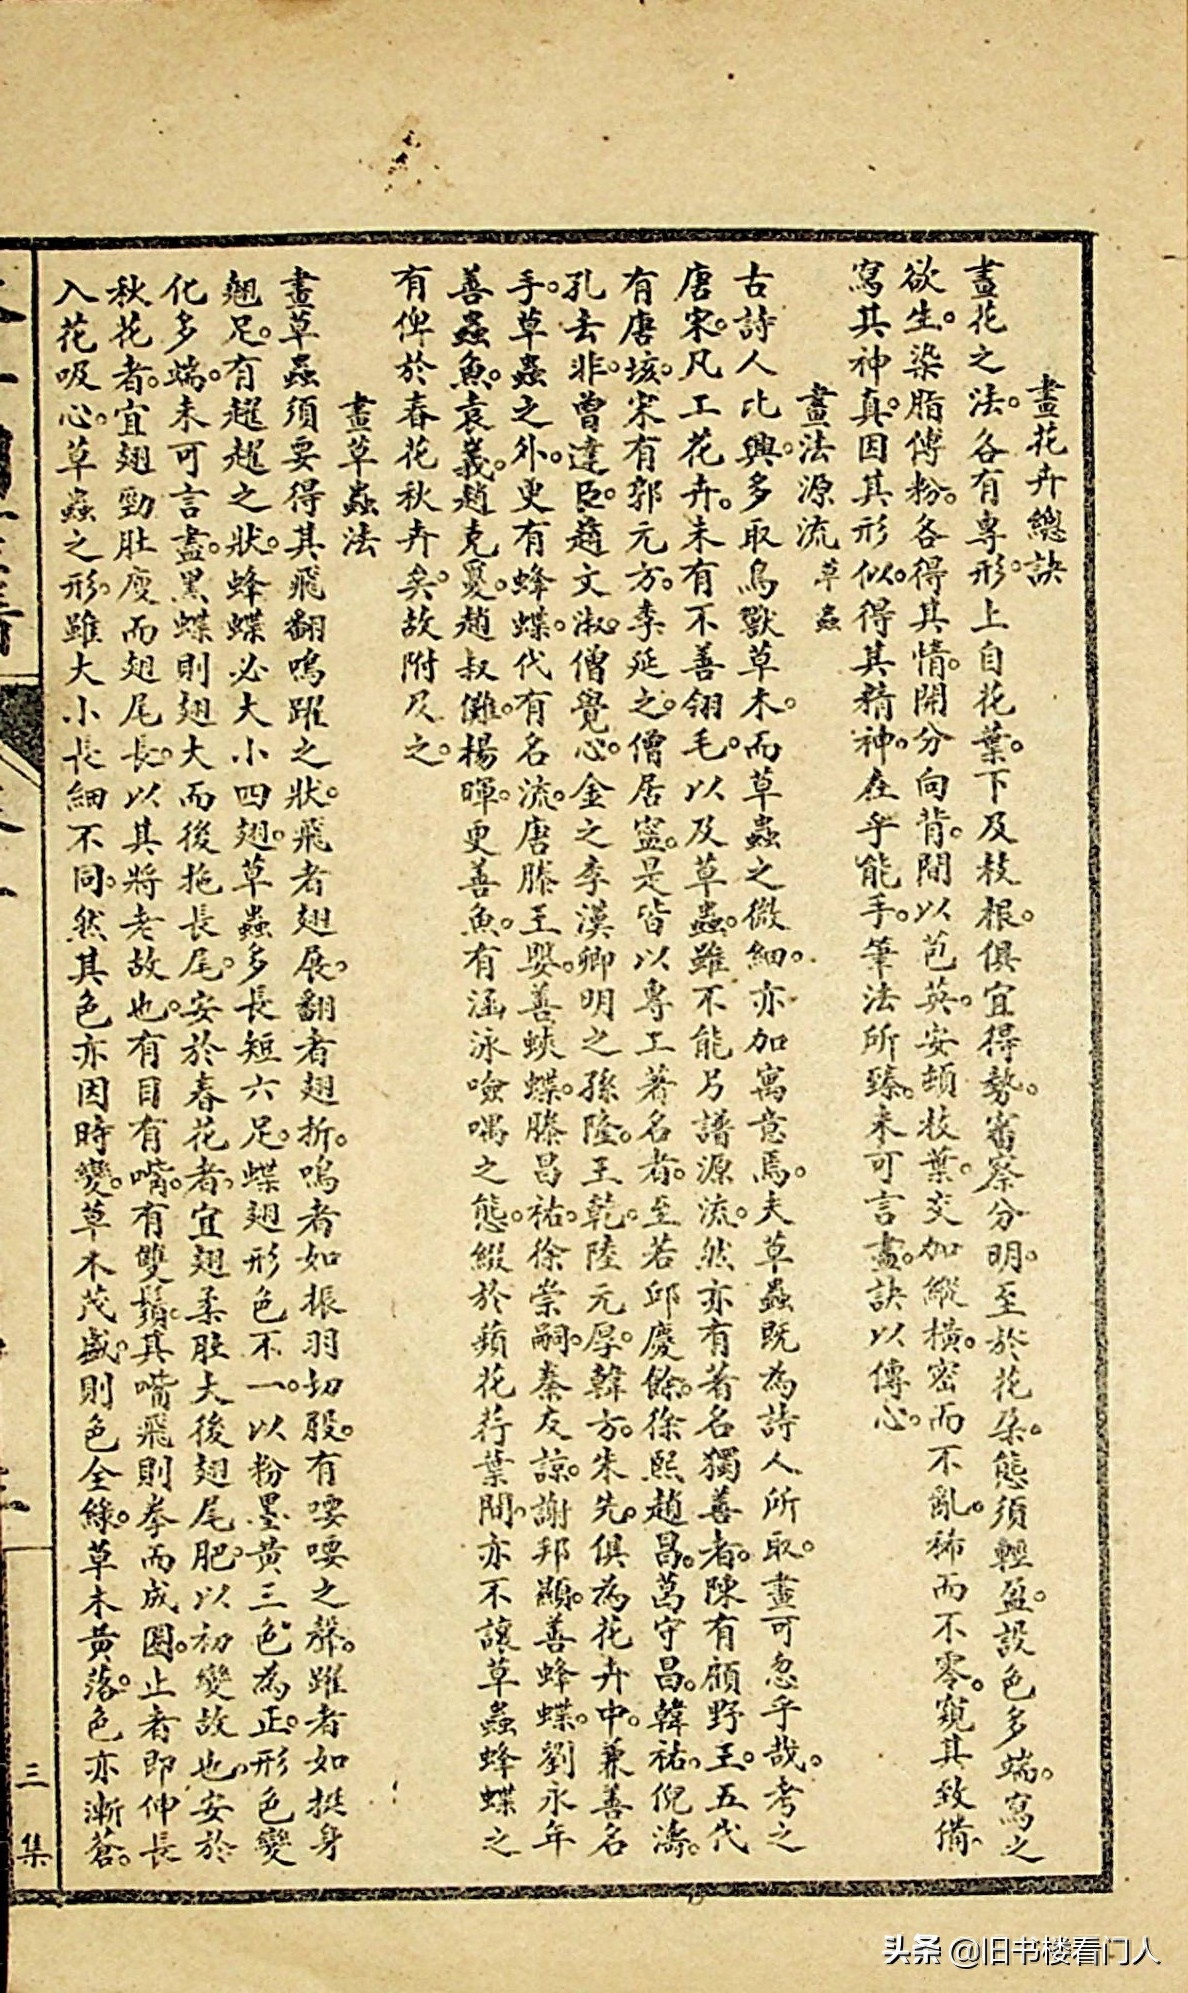 畫花卉總訣
畫花之法。各有專形。上自花葉。下及枝根。俱宜得勢。審察分明。至於花朵。態須輕盈。設色多端。寫之
欲生。染脂傅粉。各得其情。開分向背。間以苞英。安頓枝葉。交加縱橫。密而不亂。稀而不零。窺其致備
寫其神真。因其形似。得其精神。在乎能手。筆法所臻。未可言盡。訣以傳心。
畫法源流 草蟲
古詩人比興。多取鳥獸草木。而草蟲之微細。亦加寓意焉。夫草蟲既為詩人所取。畫可忽乎哉。考之
唐宋。凡工花卉。未有不善翎毛。以及草蟲。雖不能乃譜源流。然亦有著名獨善者。陳有顧野王。五代
有唐垓。宋有郭元方。李延之。僧居寍。是皆以專工著名者。至若邱慶餘。徐熙趙昌。葛守昌。韓祐。倪濤。
孔去非。曾達臣。趙文淑。僧覺心。金之李漢卿明之孫隆。王乾。陸元厚。韓方。朱先。俱為花卉中。兼善名
手。草蟲之外。更有蜂蝶。代有名流。唐滕王嬰。善蛺蝶。滕昌祐。徐崇嗣。秦友諒。謝邦顯。善蜂蝶。劉永年
善蟲魚。袁羲。趙克敻。趙叔儺。楊暉。更善魚。有涵泳噞喁之態。綴於蘋花荇葉間。亦不讓草蟲蜂蝶之
有俾於春花秋卉矣。故附及之。
畫草蟲法
畫草蟲須要得其飛翻鳴躍之狀。飛者翅展。翻者翅折。鳴者如振羽切股。有喓喓之聲。躍者如挺身
翹足。有趯趯之狀。蜂蝶必大小四翅。草蟲多長短六足。蝶翅形色不一。以粉墨黄三色為正。形色變
化多端。未可言盡。黑蝶則翅大而後拖長尾。安於春花者。宜翅柔肚大後翅尾肥。以初變故也。安於
秋花者。宜翅勁肚瘦而翅尾長。以其將老故也。有目有嘴。有雙鬚。其嘴飛則拳而成圈。止者即伸長
入花吸心。草蟲之形。雖大小長細不同。然其色亦因時變。草木茂盛。則色全綠。草木黄落。色亦漸蒼。
三集
头条 @旧书楼看门人